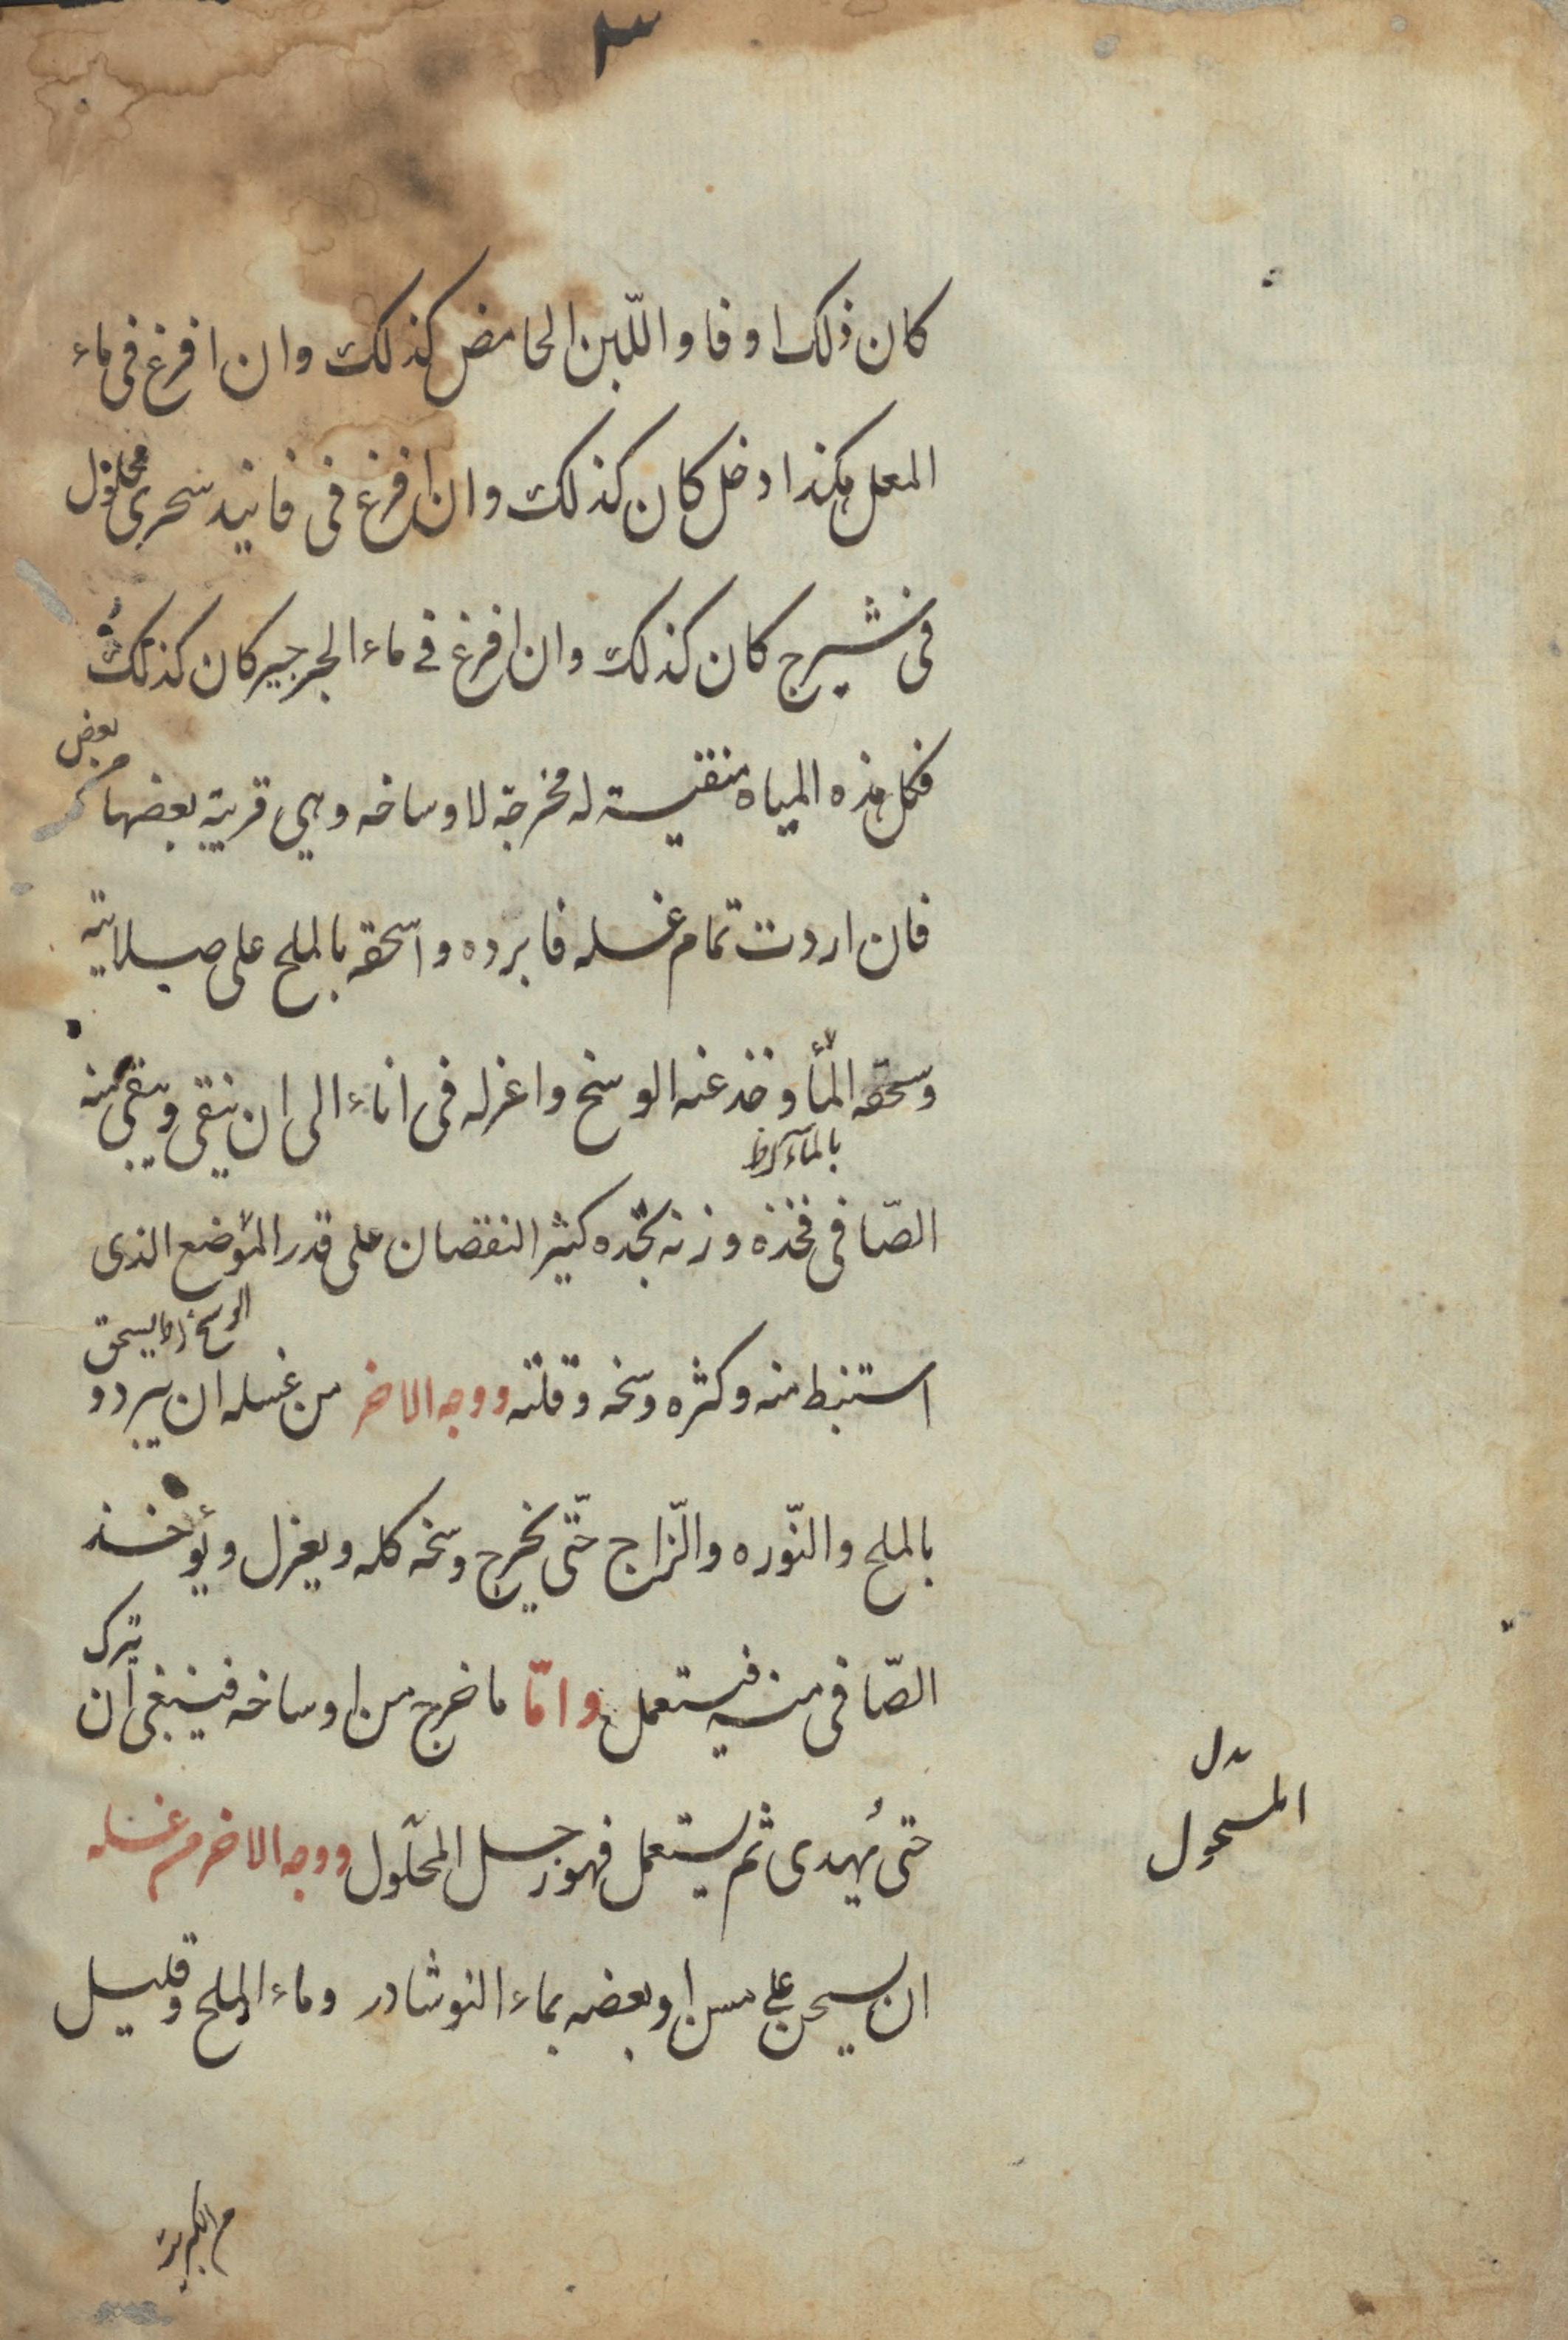 ٣
كان ذلك اوفا واللّبن الحامض كذلك وان افرغ فى ماء
المعل هكذا دخل كان كذلك وان افرغ فى فانيد سحرى محلول
فى شيرج كان كذلك وان افرغ فى ماء الجرجير كان كذلك
فكل هذه المياه منقية له مخرجة لاوساخه وهي قريبة بعضها من بعض
فان اردت تمام غسله فابرده واسحقه بالملح على صلاية
وسحقه المأ وخذ عنه الوسخ واعزله فى اناء الى ان ينقى ويبقى منه
بالمآء
الصّافى فخذه وزنه تجده كثير النقصان على قدر الموضع الذى
الوسخ يسحق
استنبط منه وكثره وسخه وقلته ووجه الاخر من غسله ان يبرد و
بالملح والنّوره والزّاج حتّى يخرج وسخه كله ويعزل ويؤخذ
الصّافى منه فيستعمل وامّا ما خرج من اوساخه فينبغى أن يترك
حتى يُهدى ثم يستعمل فهو زحل المحلول ووجه الاخر من غسله
بدل
المسحول
ان يسحق على مسن او بعضه بماء النوشادر وماء الملح وقليل
من الكبريت